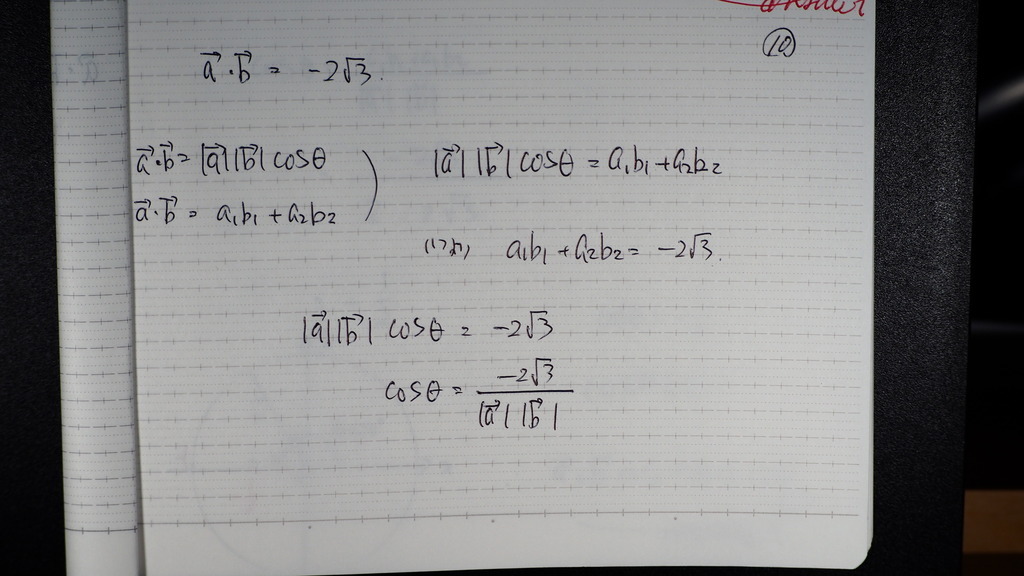 answer
⑩
\vec{a}・\vec{b} = -2√3.
\vec{a}・\vec{b} = |\vec{a}||\vec{b}| cosθ
\vec{a}・\vec{b} = a₁b₁ + a₂b₂
|\vec{a}||\vec{b}| cosθ = a₁b₁ + a₂b₂
a₁b₁ + a₂b₂ = -2√3.
|\vec{a}||\vec{b}| cosθ = -2√3
cosθ = \frac{-2√3}{|\vec{a}||\vec{b}|}